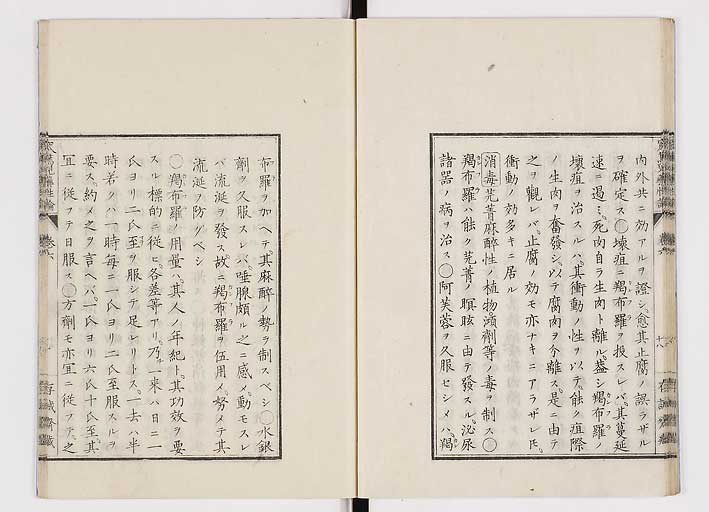 内外共ニ効アルヲ證シ、愈其止腐ノ誤ラザル
ヲ確定ス○壊疽ニ羯布羅ヲ投スレバ、其蔓延
速ニ遏ミ、死肉自ラ生肉ト離ル、蓋シ羯布羅ノ
壊疽ヲ治スルハ、其衝動ノ性ヲ以テ、能ク疽際
ノ生肉ヲ奮發シ、以テ腐肉ヲ分離ス、是ニ由テ
之ヲ觀レバ、止腐ノ効モ亦ナキニアラザレ𪜈、
衝動ノ効多キニ居ル
消毒芫菁麻醉性ノ植物瀕劑等ノ毒ヲ制ス○
羯布羅ハ能ク芫菁ノ瞑眩ニ由テ發スル、泌尿
諸器ノ病ヲ治ス○阿芙蓉ヲ久服セシメハ、羯
布羅ヲ加ヘテ、其麻醉ノ勢ヲ制スベシ○水銀
劑ヲ久服スレバ、唾腺頗ル之ニ感メ動モスレ
バ流涎ヲ發ス故ニ羯布羅ヲ伍用メ、努メテ其
流涎ヲ防グベシ
○羯布羅ノ用量ハ、其人ノ年紀ト、其功效ヲ要
スル標的ニ從ヒ、各差等アリ、乃一來ハ日ニ一
氏ヨリ二氏ヲ服シテ足レリトス、一去ハ半
時若クハ一時毎ニ一氏ヨリ二氏至服スルヲ
要ス、約メ之ヲ言ヘバ、一氏ヨリ六氏十氏至、其
宜ニ從フテ日服ス○方劑モ亦宜ニ從フテ、之